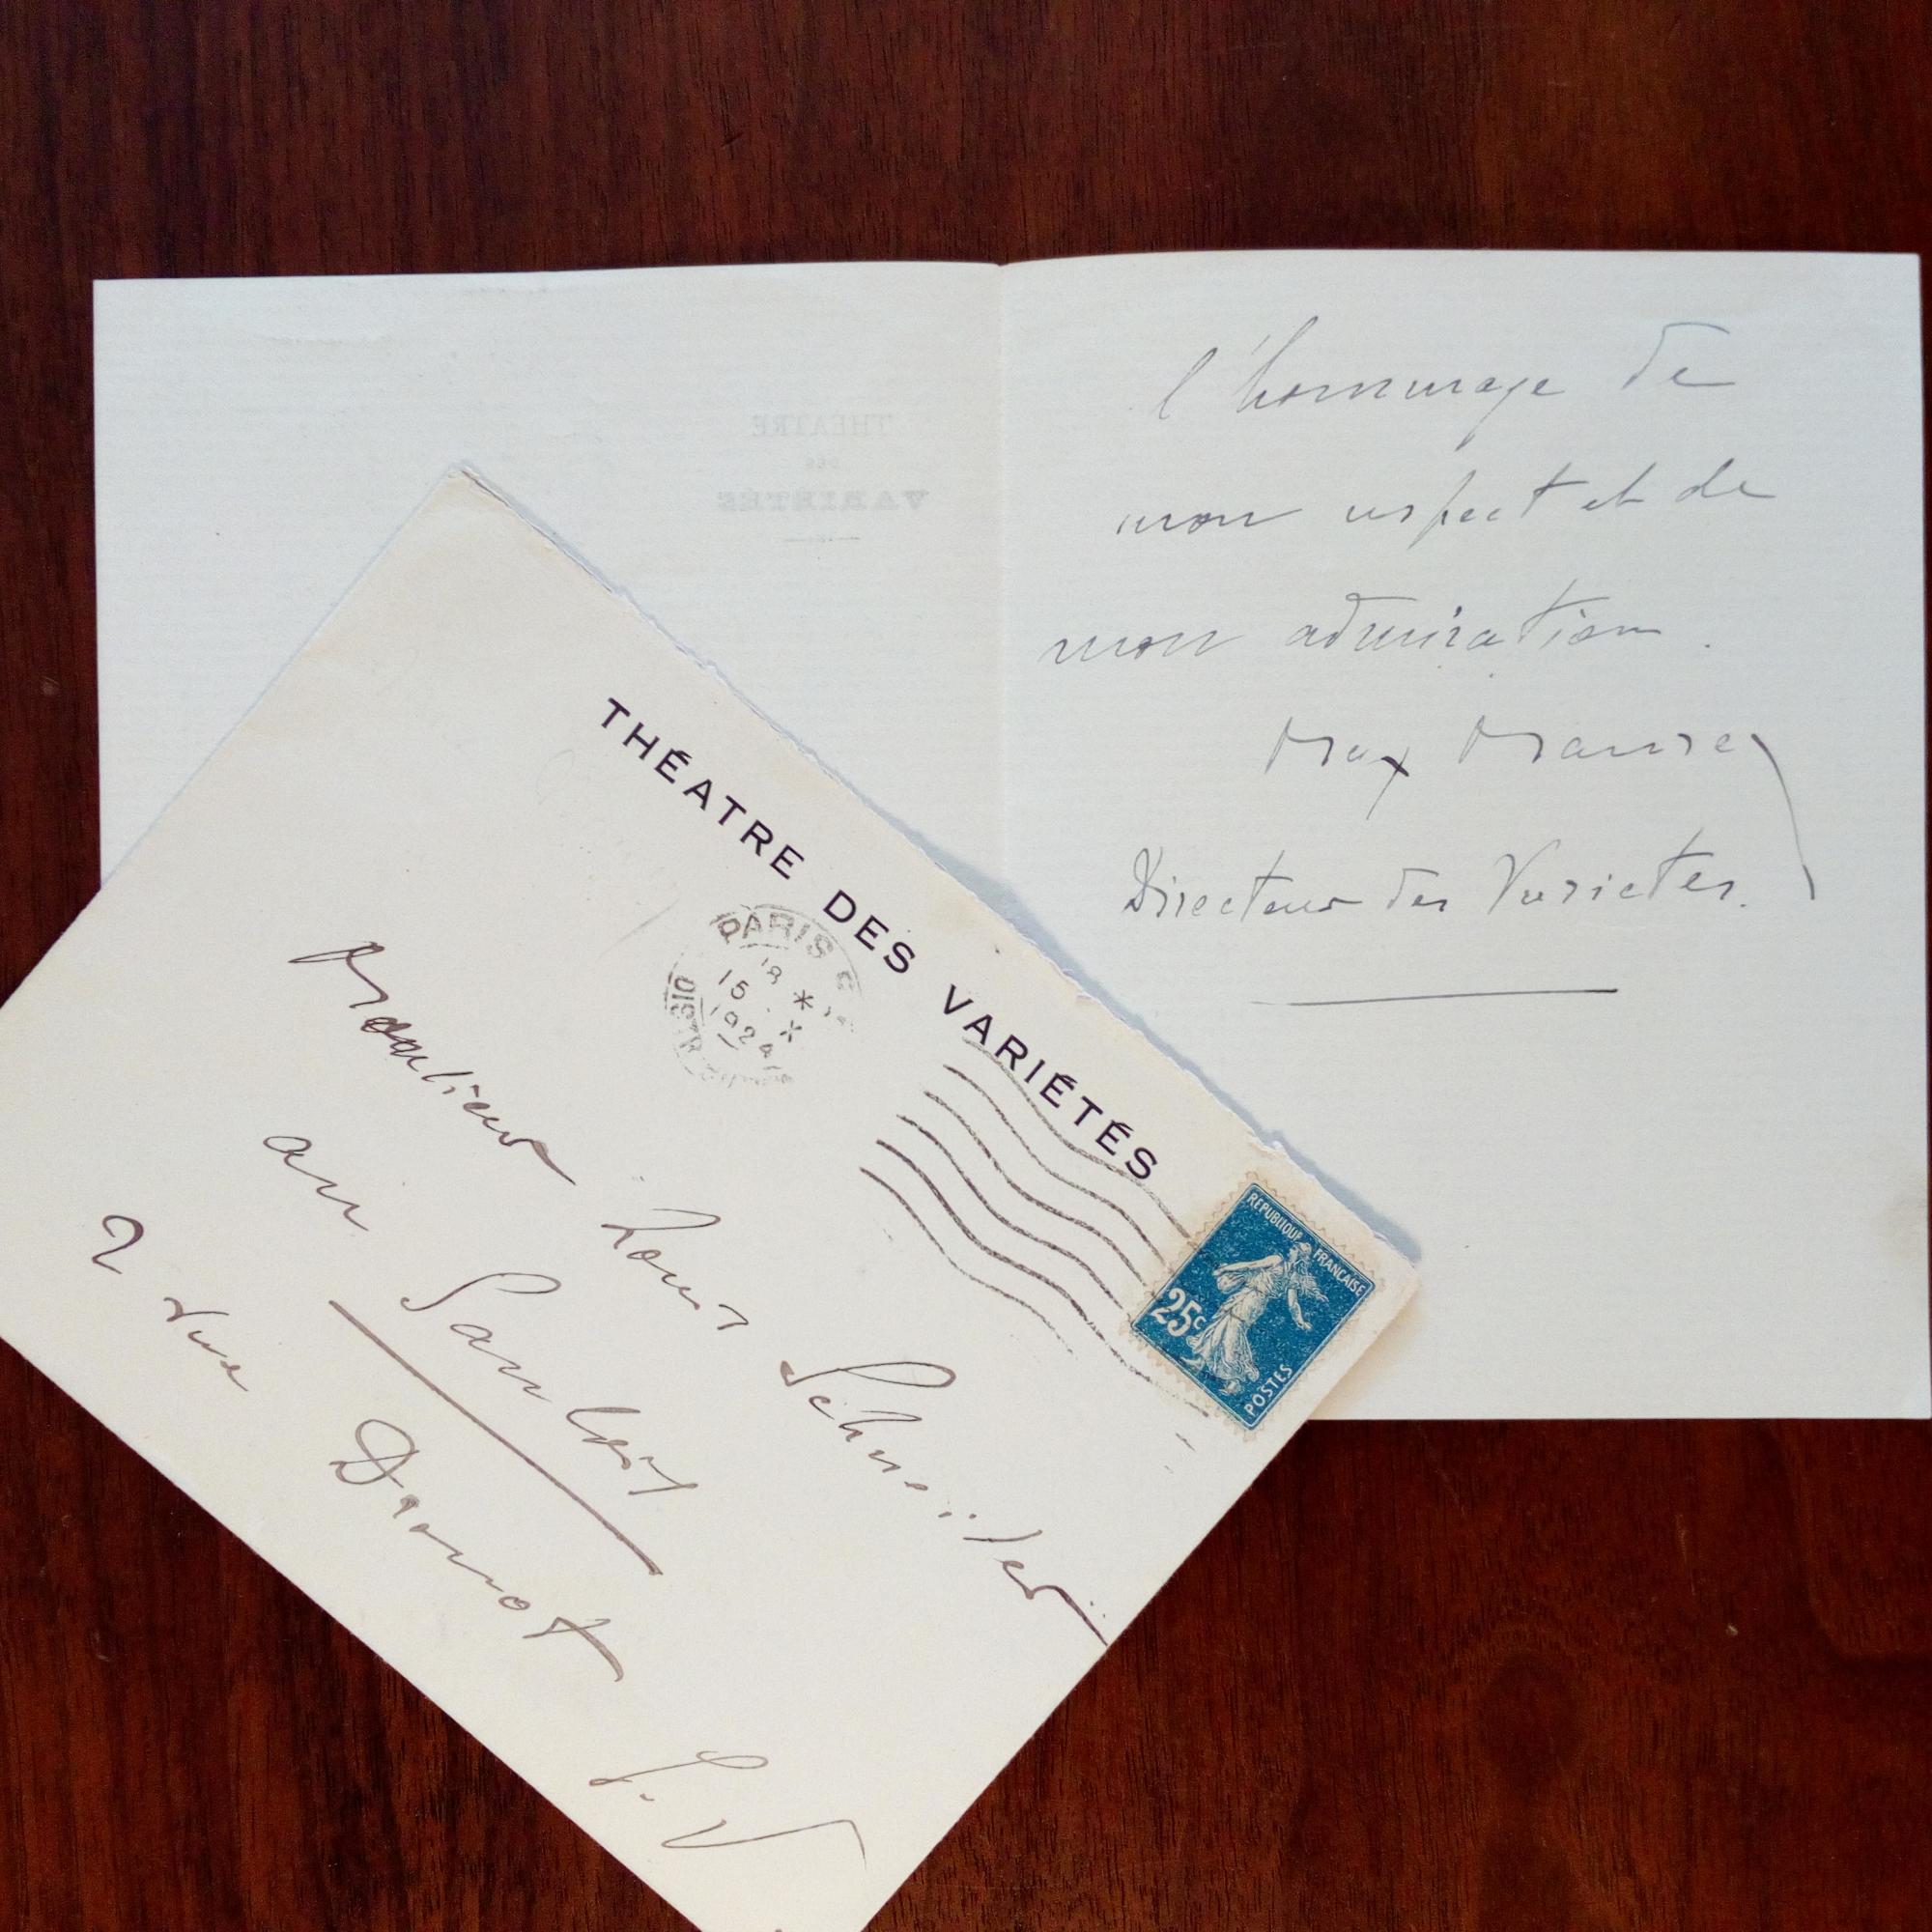 THÉATRE
DES
VARIÉTÉS
l'hommage de
mon respect et de
mon admiration.
Max Maurey
Directeur des Varietes.
THÉATRE DES VARIÉTÉS
PARIS
15 X
1924
DISTRIB
REPUBLIQUE FRANÇAISE
25c
POSTES
Monsieur Louis Schneider
au Gaulois
2 rue Drouot
E. V